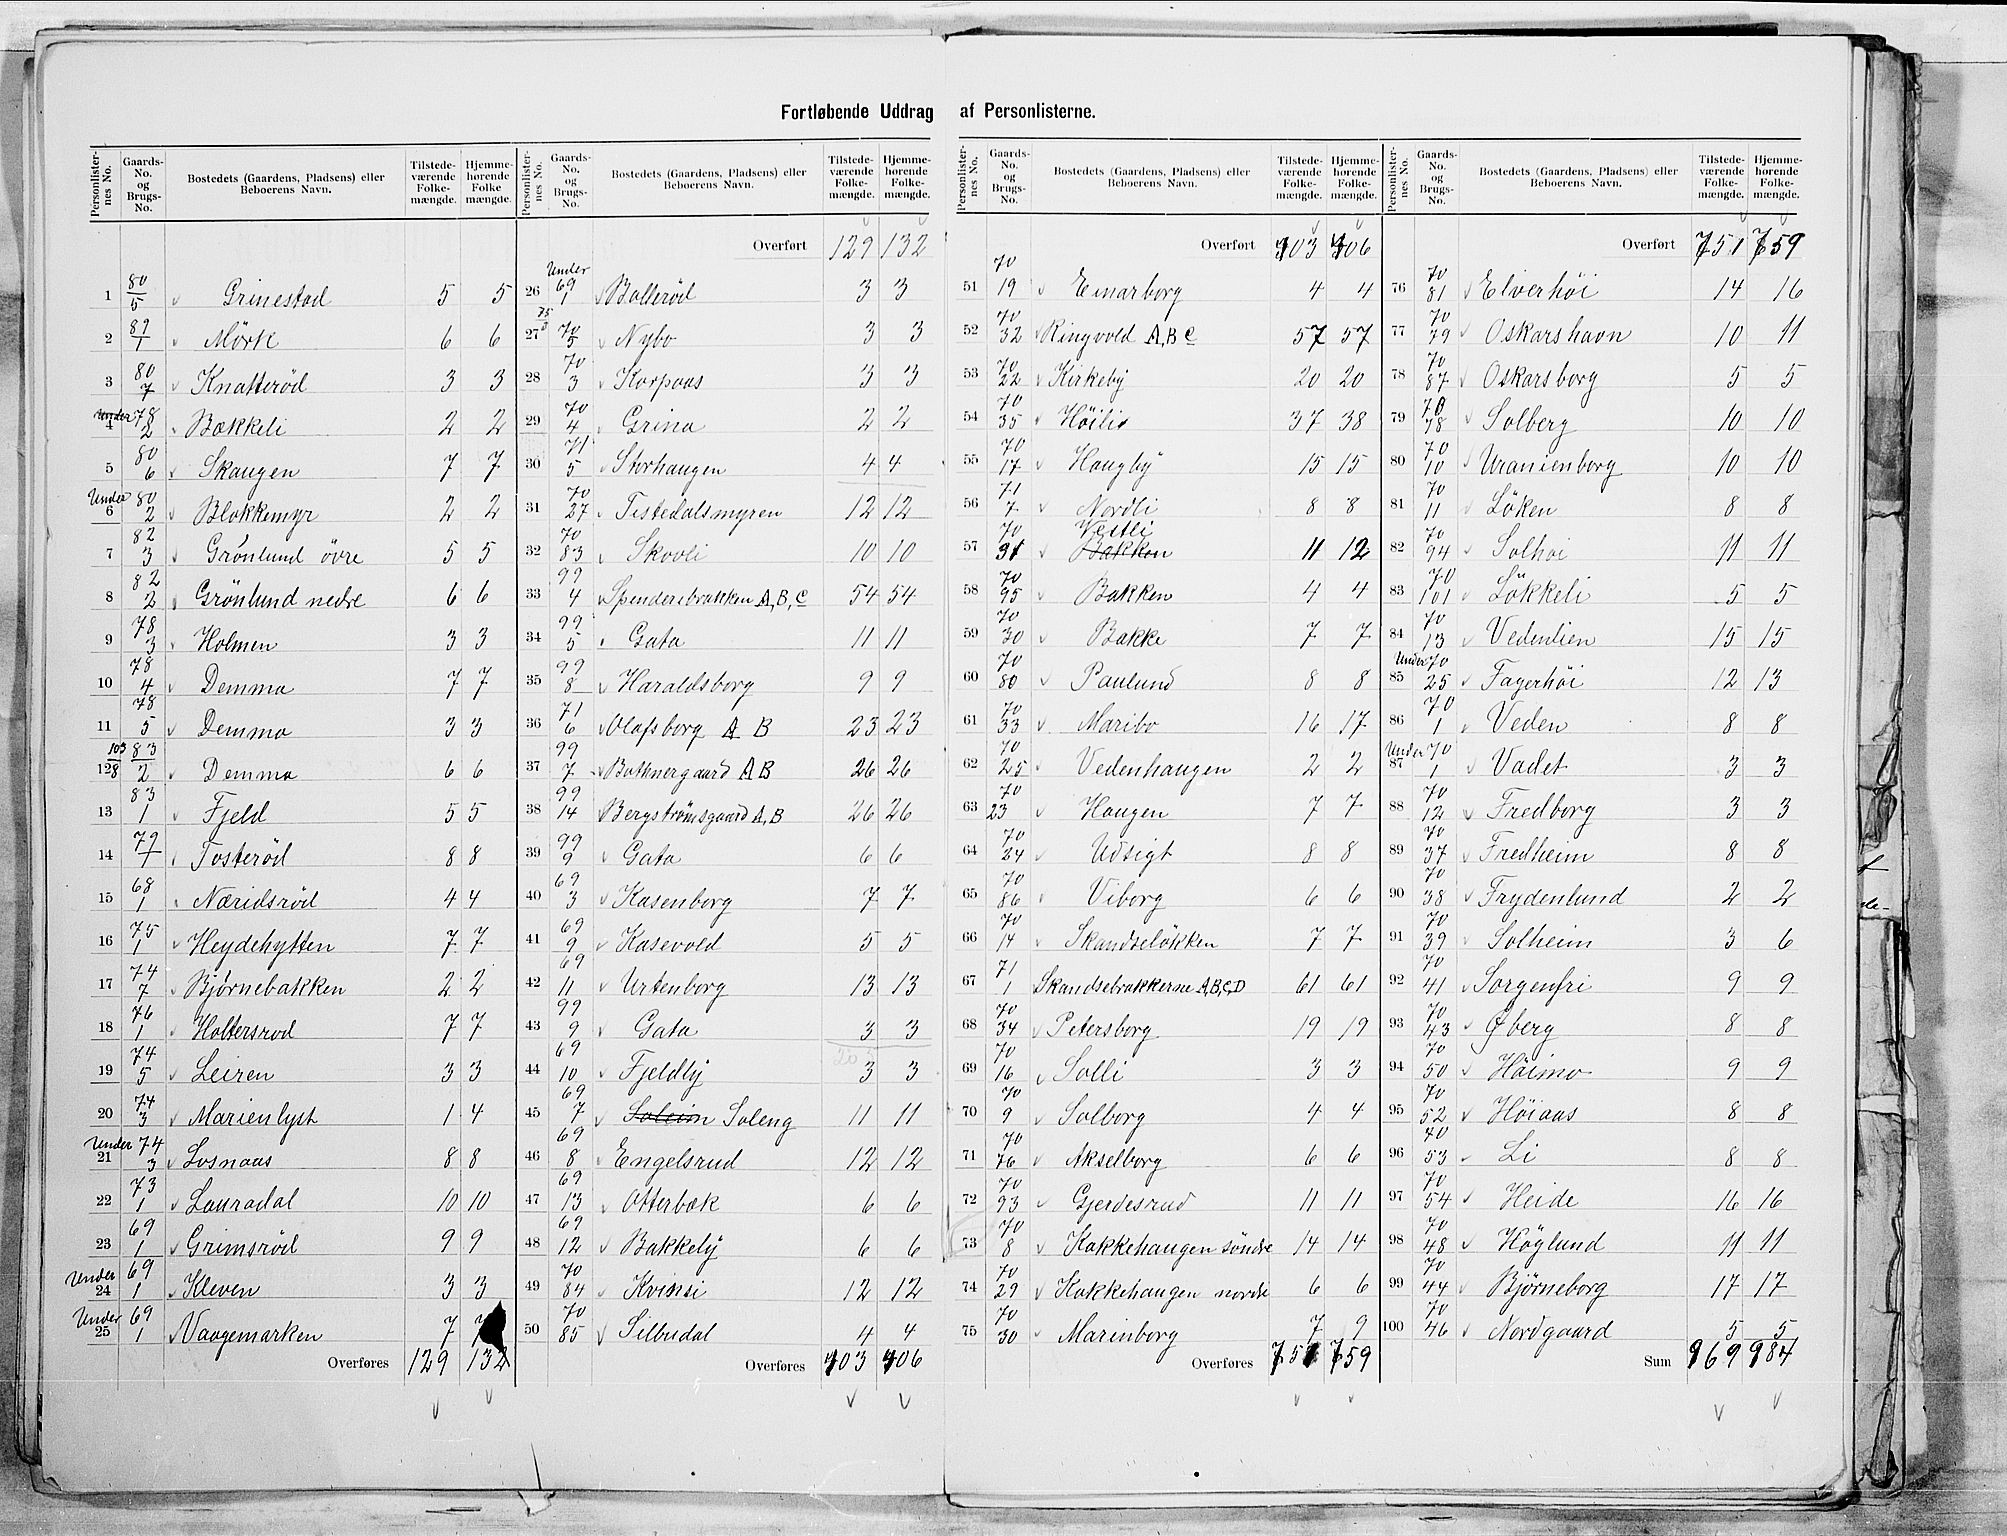 Fortløbende Uddrag af Personlisterne.
Personlisternes No. Gaards-No. og Brugs-No. Bostedets (Gaardens, Pladsens) eller Beboerens Navn. Tilstedeværende Folkemængde. Hjemmehørende Folkemængde.
1 80/5 Grinestad 5 5
2 89/1 Mörk 6 6
3 80/7 Knatteröd 3 3
4 Under 78/2 Bækkeli 2 2
5 80/6 Skaugen 7 7
6 Under 80/2 Blokkemyr 2 2
7 82/3 Grönlund övre 5 5
8 82/2 Grönlund nedre 6 6
9 78/3 Holmen 3 3
10 78/4 Demma 7 7
11 78/5 Demma 3 3
12 103/8 83/2 Demma 6 6
13 83/1 Fjeld 5 5
14 79/1 Tosteröd 8 8
15 68/1 Næridsröd 4 4
16 75/1 Heydehytten 7 7
17 74/7 Bjørnebakken 2 2
18 76/1 Holtersrød 7 7
19 74/5 Leiren 3 3
20 74/3 Marienlyst 1 4
21 Under 74/3 Losnaas 8 8
22 73/1 Lauradal 10 10
23 69/1 Grimsröd 9 9
24 Under 69/1 Kleven 3 3
25 Under 69/1 Vaagemarken 7 7
Overføres 129 132
Personlisternes No. Gaards-No. og Brugs-No. Bostedets (Gaardens, Pladsens) eller Beboerens Navn. Tilstedeværende Folkemængde. Hjemmehørende Folkemængde.
Overført 129 132
26 Under 69/1 Bolleröd 3 3
27 70/5 Nybo 3 3
28 70/3 Korpaas 3 3
29 70/4 Grina 2 2
30 71/5 Storhaugen 4 4
31 70/27 Tistedalsmyren 12 12
32 70/83 Skovli 10 10
33 99/4 Spenderebrakken A, B, C 54 54
34 99/5 Gata 11 11
35 99/8 Haraldsborg 9 9
36 71/6 Olafsborg A B 23 23
37 99/7 Bothnergaard A B 26 26
38 99/14 Bergströmsgaard A, B 26 26
39 99/9 Gata 6 6
40 69/3 Kasenborg 7 7
41 69/9 Kasevold 5 5
42 69/11 Urtenborg 13 13
43 99/9 Gata 3 3
44 69/10 Fjeldly 3 3
45 69/7 Soleim Soleng 11 11
46 69/8 Engelsrud 12 12
47 69/13 Otterbæk 6 6
48 69/12 Bakkely 6 6
49 70/84 Kvimsi 12 12
50 70/85 Silbudal 4 4
Overføres 403 406
Personlisternes No. Gaards-No. og Brugs-No. Bostedets (Gaardens, Pladsens) eller Beboerens Navn. Tilstedeværende Folkemængde. Hjemmehørende Folkemængde.
Overført 403 406
51 70/19 Einarborg 4 4
52 70/32 Ringvold A, B C 57 57
53 70/22 Kirkeby 20 20
54 70/35 Höili 37 38
55 70/17 Haugby 15 15
56 71/7 Nordli 8 8
57 70/91 Bakken Vestli 11 12
58 70/95 Bakken 4 4
59 70/30 Bakke 7 7
60 70/80 Paulund 8 8
61 70/33 Maribo 16 17
62 70/25 Vedenhaugen 2 2
63 70/23 Haugen 7 7
64 70/24 Udsigt 8 8
65 70/86 Viborg 6 6
66 70/14 Skandselökken 7 7
67 71/1 Skandsebrakkerne A, B, C, D 61 61
68 70/34 Petersborg 19 19
69 70/16 Solli 3 3
70 70/9 Solborg 4 4
71 70/76 Akselborg 6 6
72 70/93 Gjerdesrud 11 11
73 70/8 Kakkehaugen söndre 14 14
74 70/29 Kakkehaugen nordre 6 6
75 70/30 Marinborg 7 9
Overføres 751 759
Personlisternes No. Gaards-No. og Brugs-No. Bostedets (Gaardens, Pladsens) eller Beboerens Navn. Tilstedeværende Folkemængde. Hjemmehørende Folkemængde.
Overført 751 759
76 70/81 Elverhöi 14 16
77 70/79 Oskarshavn 10 11
78 70/87 Oskarsborg 5 5
79 70/78 Solberg 10 10
80 70/10 Uranienborg 10 10
81 70/11 Löken 8 8
82 70/94 Solhöi 11 11
83 70/101 Lökkeli 5 5
84 70/13 Vedenlien 15 15
85 Under 70/25 Fagerhöi 12 13
86 70/1 Veden 8 8
87 Under 70/1 Vadet 3 3
88 70/12 Fredborg 3 3
89 70/37 Fredheim 8 8
90 70/38 Frydenlund 2 2
91 70/39 Solheim 3 6
92 70/41 Sorgenfri 9 9
93 70/43 Øberg 8 8
94 70/50 Höimo 9 9
95 70/52 Höiaas 8 8
96 70/53 Li 8 8
97 70/54 Heide 16 16
98 70/48 Höglund 11 11
99 70/44 Bjørneborg 17 17
100 70/46 Nordgaard 5 5
Sum 969 984